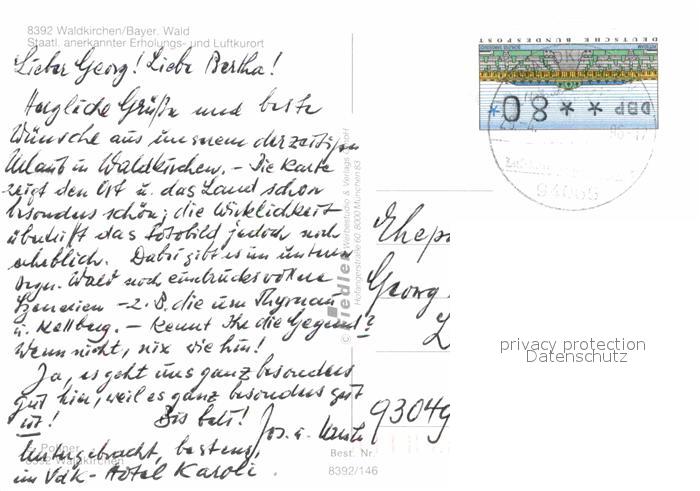 8392 Waldkirchen/Bayer. Wald
Staatl. anerkannter Erholungs- und Luftkurort
Lieber Georg! Liebe Bertha!
Herzliche Grüße und beste
Wünsche aus unserem derzeitigen
Urlaub in Waldkirchen. – Die Karte
zeigt den Ort u. das Land schon
besonders schön; die Wirklichkeit
übertrifft das Fotobild jedoch noch
erheblich. Dabei gibt es im unteren
Wald noch eindrucksvollere
Szenerien – z.B. die um Thyrnau
u. Kellberg. – Kennt Ihr die Gegend?
Wenn nicht, nix wie hin!
Ja, es geht uns ganz besonders
gut hier, weil es ganz besonders gut
ist! Bis bald!
Jos. u.
Untergebracht, bestens,
im VdK- Hotel Karoli.
Pollner
8392 Waldkirchen
Best. Nr.
8392/146
Werbestudio & Verlags GmbH
Hofangerstraße 60 8000 München 83
DEUTSCHE BUNDESPOST
DBP
* * 80 *
94065
Ehep
Georg
93049
privacy protection
Datenschutz